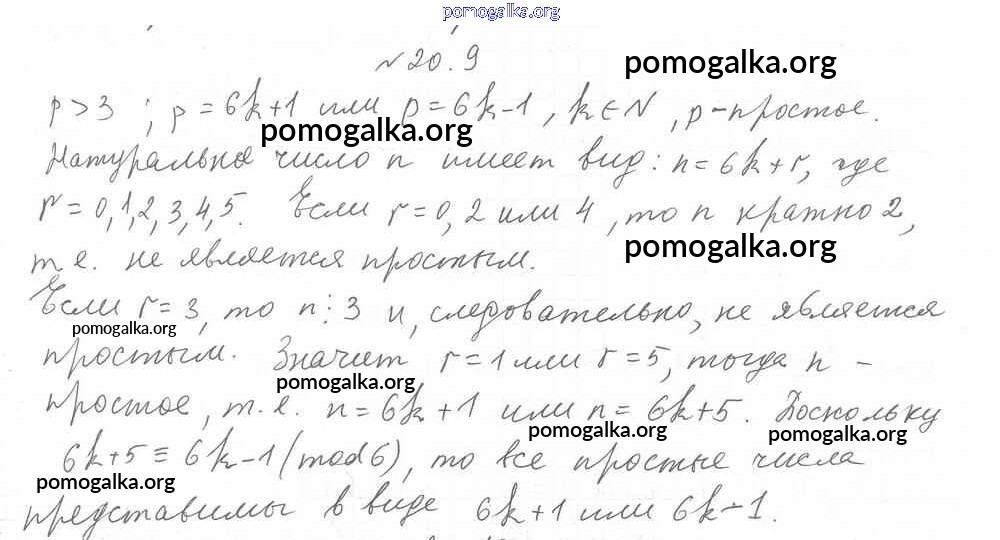 pomogalka.org
№ 20.9
pomogalka.org
p > 3 ; p = 6k+1 или p = 6k-1, k ∈ N, p - простое.
pomogalka.org
Натуральное число n имеет вид: n = 6k + r, где
r = 0,1,2,3,4,5. Если r = 0, 2 или 4, то n кратно 2,
pomogalka.org
т.е. не является простым.
Если r = 3, то n ⋮ 3 и, следовательно, не является
pomogalka.org
простым. Значит r = 1 или r = 5, тогда n -
pomogalka.org
простое, т.е. n = 6k + 1 или n = 6k+5. Поскольку
pomogalka.org
pomogalka.org
6k+5 ≡ 6k-1 (mod 6), то все простые числа
pomogalka.org
представимы в виде 6k+1 или 6k-1.